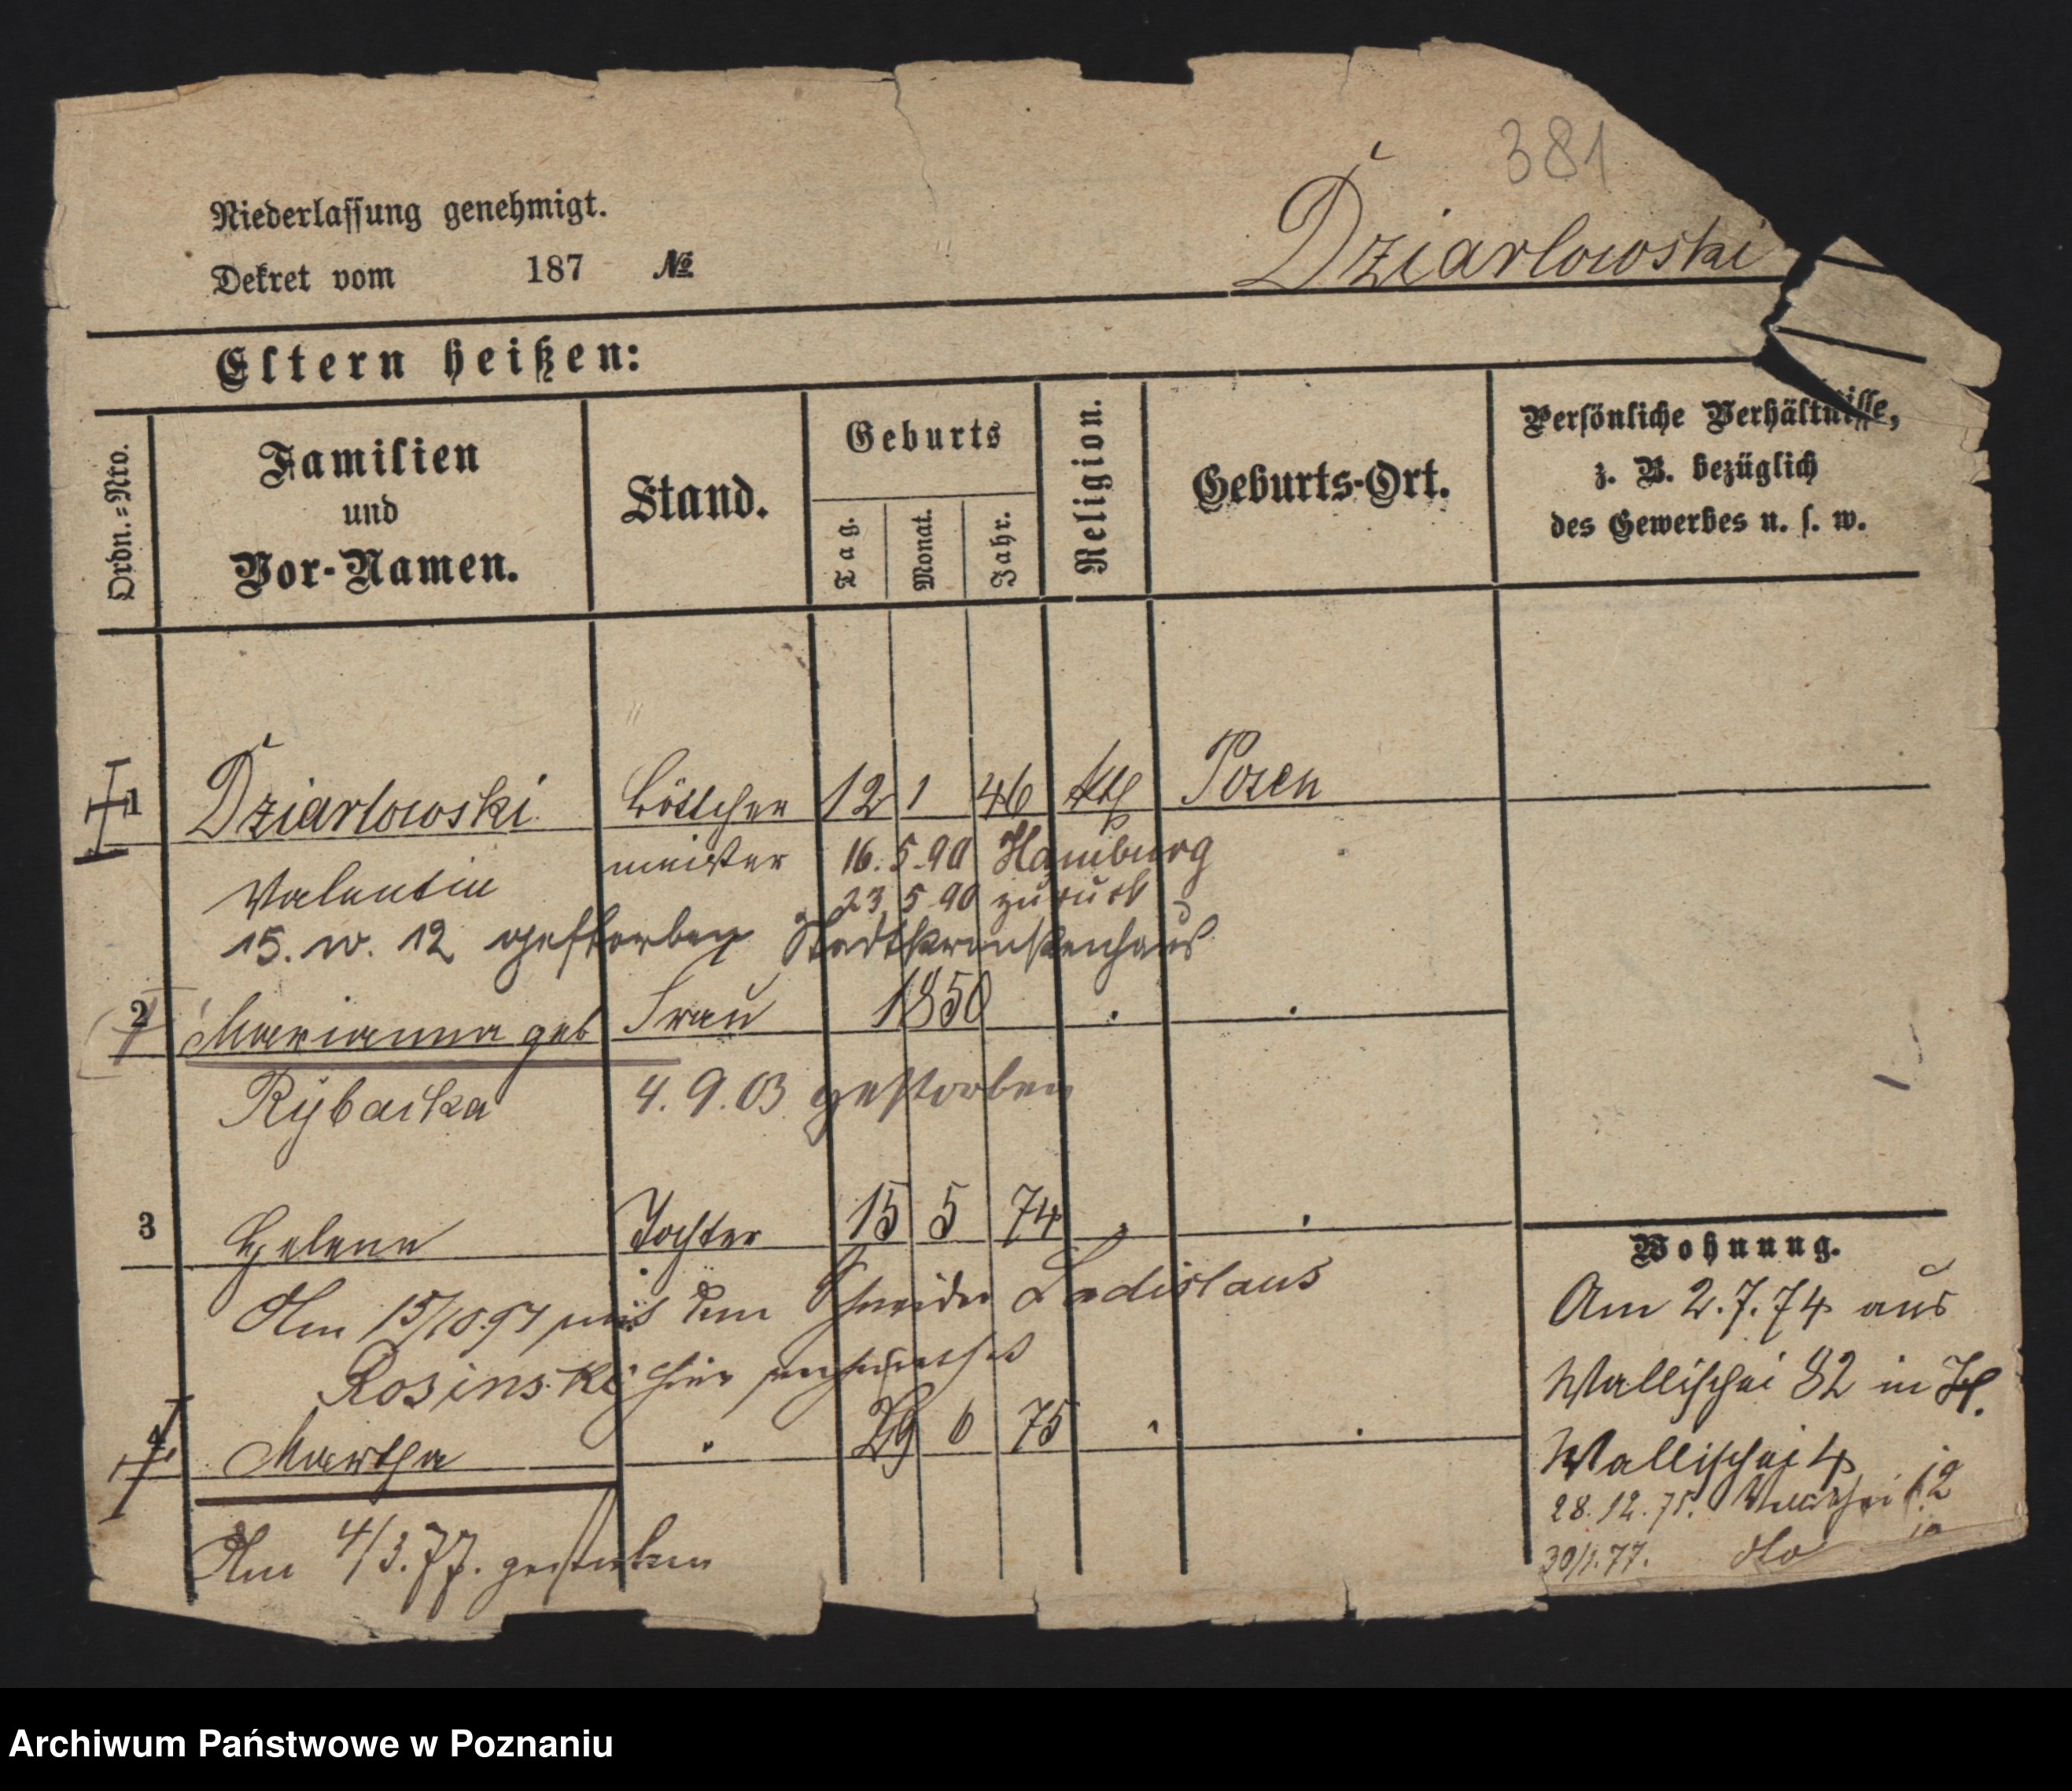 381
Dziarlowski
Niederlassung genehmigt.
Dekret vom 187 №
Eltern heißen:
Ordn.=Nro.
Familien
und
Vor-Namen.
Stand.
Geburts
Tag.
Monat.
Jahr.
Religion.
Geburts-Ort.
Persönliche Verhältnisse,
z. B. bezüglich
des Gewerbes u. s. w.
1 Dziarlowski Böttcher 12 1 46 kth Posen
Valentin meister 16. 5. 90 Hamburg
23. 5 90 zurück
15. 12 gestorben Stadtkrankenhaus
2 Marianna geb Frau 1850
Rybacka 4. 9. 03 gestorben
3 Helene Tochter 15 5 74
Am mit dem Schneider Ladislaus
Rosinski hier verheirathet
4 Martha 29 6 75
Am 4/3. 77. gestorben
Wohnung.
Am 2. 7. 74 aus
Wallischei 82 in
Wallischei 4
28. 12. 75. Wallischei 12
30/1. 77. dto